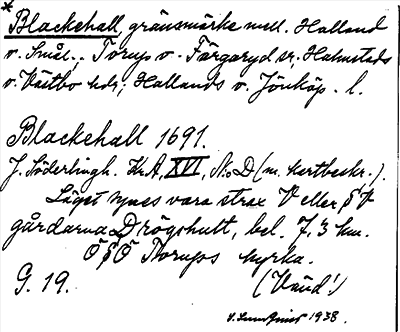 *
Blackehall, gränsmärke mell. Halland
o. Smål., Torup o. Färgaryd sr, Halmstads
o. Västbo hdr, Hallands o. Jönköp. l.
Blackehall 1691.
J. Söderlingh. Kr.A, XVI, N:o D (m. kartbeskr.).
Läget synes vara strax V eller SV
gårdarna Drögshult, bel. 7,3 km.
ÖSÖ Torups kyrka.
G. 19. (Vänd!)
1938.